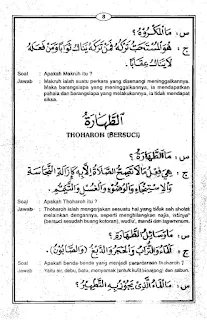 8
س : مَا الْمَكْرُوهُ ؟
ج : هُوَ الْمُسْتَحَبُّ تَرْكُهُ فَمَنْ تَرَكَهُ يَنَالُ ثَوَابًا وَمَنْ فَعَلَهُ
لَا يَنَالُ عِقَابًا .
Soal : Apakah Makruh itu ?
Jawab : Makruh ialah suatu perkara yang disenangi meninggalkannya.
Maka barangsiapa yang meninggalkannya, ia mendapatkan
pahala dan barangsiapa yang melakukannya, ia tidak mendapat
siksa.
الطَّهَارَةُ
THOHAROH (BERSUCI)
س : مَا الطَّهَارَةُ ؟
ج : هِيَ فِعْلُ مَا لَا تَصِحُّ الصَّلَاةُ إِلَّا بِهِ كَإِزَالَةِ النَّجَاسَةِ
وَالْاِسْتِنْجَاءِ وَالْوُضُوْءِ وَالْغُسْلِ وَالتَّيَمُّمِ .
Soal : Apakah Thoharoh itu ?
Jawab : Thoharoh ialah mengerjakan sesuatu hal yang tidak sah sholat
melainkan dengannya, seperti menghilangkan najis, istinja'
(bersuci sesudah buang kotoran), wudlu', mandi dan tayammum.
س : مَا وَسَائِلُ الطَّهَارَةِ ؟
ج : الْمَاءُ وَالتُّرَابُ وَالْحَجَرُ وَالدَّبْغُ ( وَالصَّابُونُ ) .
Soal : Apakah benda-benda yang menjadi Thoharoh ?
Jawab : Yaitu air, debu, batu, menyamak (untuk kulit) dan sabun.
س : مَا الْمَاءُ الَّذِي يَجُوْزُ بِهِ التَّطْهِيْرُ ؟